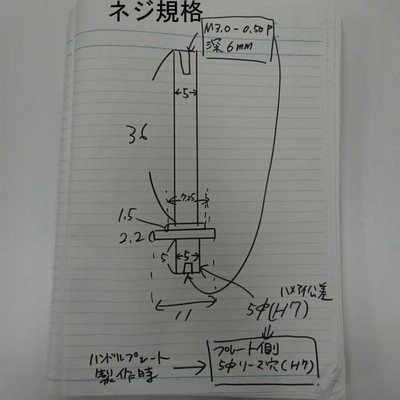 ネジ規格
M3.0-0.50P
深6mm
5
36
7.25
1.5
2.2
5
5
11
ハメアイ公差
5Φ(H7)
プレート側
5Φリーマ穴(H7)
ハンドルプレート
製作時